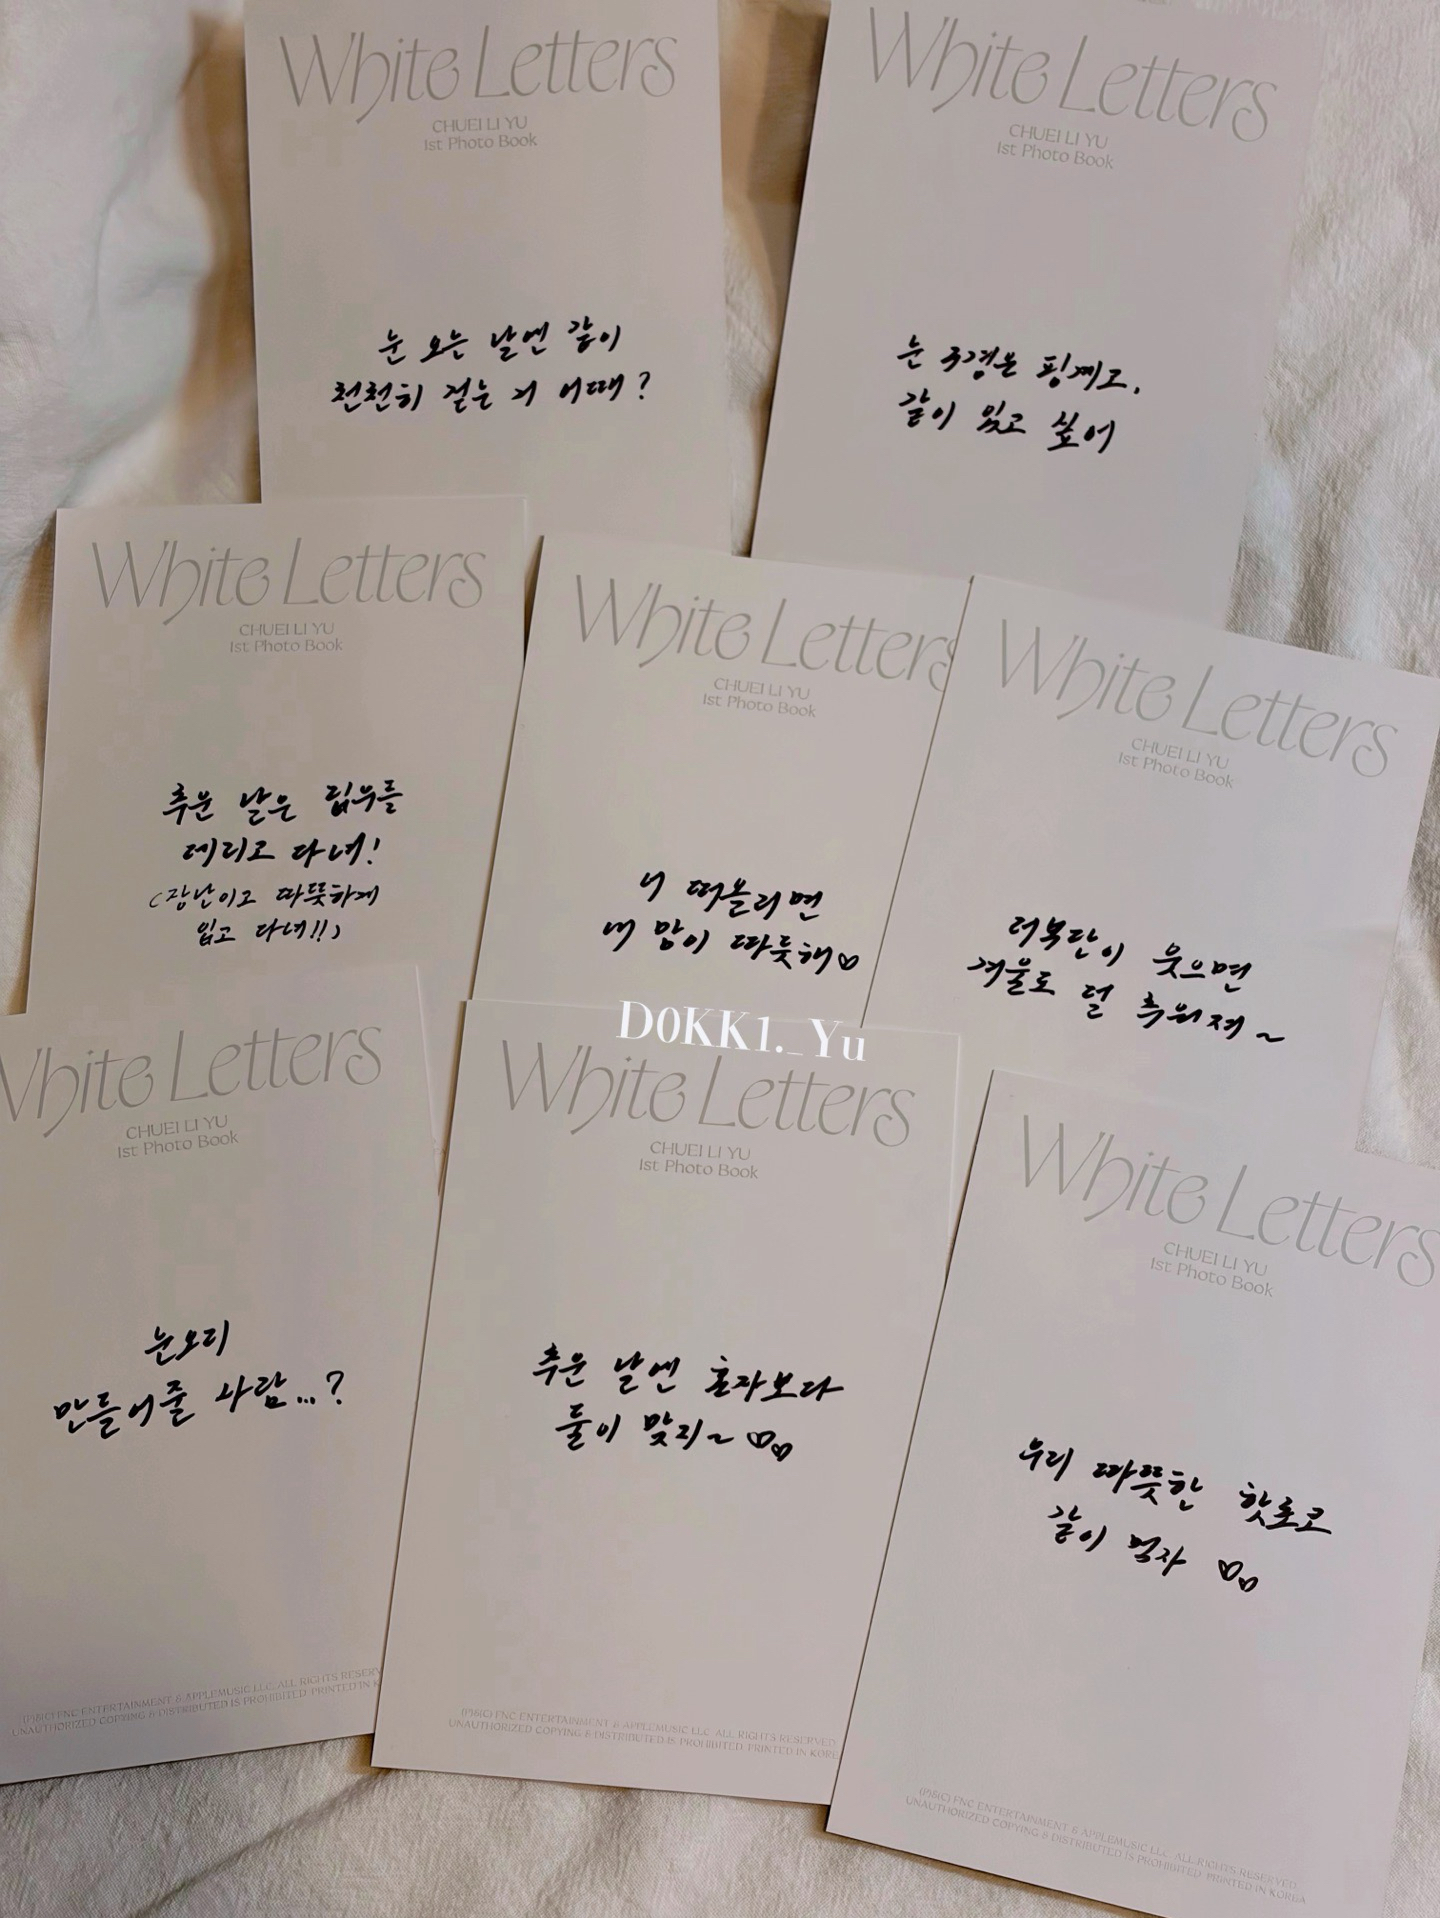 White Letters
CHUEI LI YU
1st Photo Book
눈 오는 날엔 같이
천천히 걷는 거 어때?
White Letters
CHUEI LI YU
1st Photo Book
눈 구경은 핑계고,
같이 있고 싶어
White Letters
CHUEI LI YU
1st Photo Book
추운 날은 립우를
데리고 다녀!
(장난이고 따뜻하게
입고 다녀!!)
White Letters
CHUEI LI YU
1st Photo Book
너 떠올리면
내 맘이 따뜻해♡
White Letters
CHUEI LI YU
1st Photo Book
더복단이 웃으면
겨울도 덜 추워져~
White Letters
CHUEI LI YU
1st Photo Book
눈오리
만들어줄 사람...?
(P)&(C) FNC ENTERTAINMENT & APPLEMUSIC LLC. ALL RIGHTS RESERV
UNAUTHORIZED COPYING & DISTRIBUTED IS PROHIBITED. PRINTED IN K
D0KK1._Yu
White Letters
CHUEI LI YU
1st Photo Book
추운 날엔 혼자보다
둘이 맞지~ ♡♡
(P)&(C) FNC ENTERTAINMENT & APPLEMUSIC LLC. ALL RIGHTS RESERVED.
UNAUTHORIZED COPYING & DISTRIBUTED IS PROHIBITED. PRINTED IN KORE
White Letters
CHUEI LI YU
1st Photo Book
우리 따뜻한 핫초코
같이 먹자 ♡♡
(P)&(C) FNC ENTERTAINMENT & APPLEMUSIC LLC. ALL RIGHTS RESERVED.
UNAUTHORIZED COPYING & DISTRIBUTED IS PROHIBITED. PRINTED IN KOREA